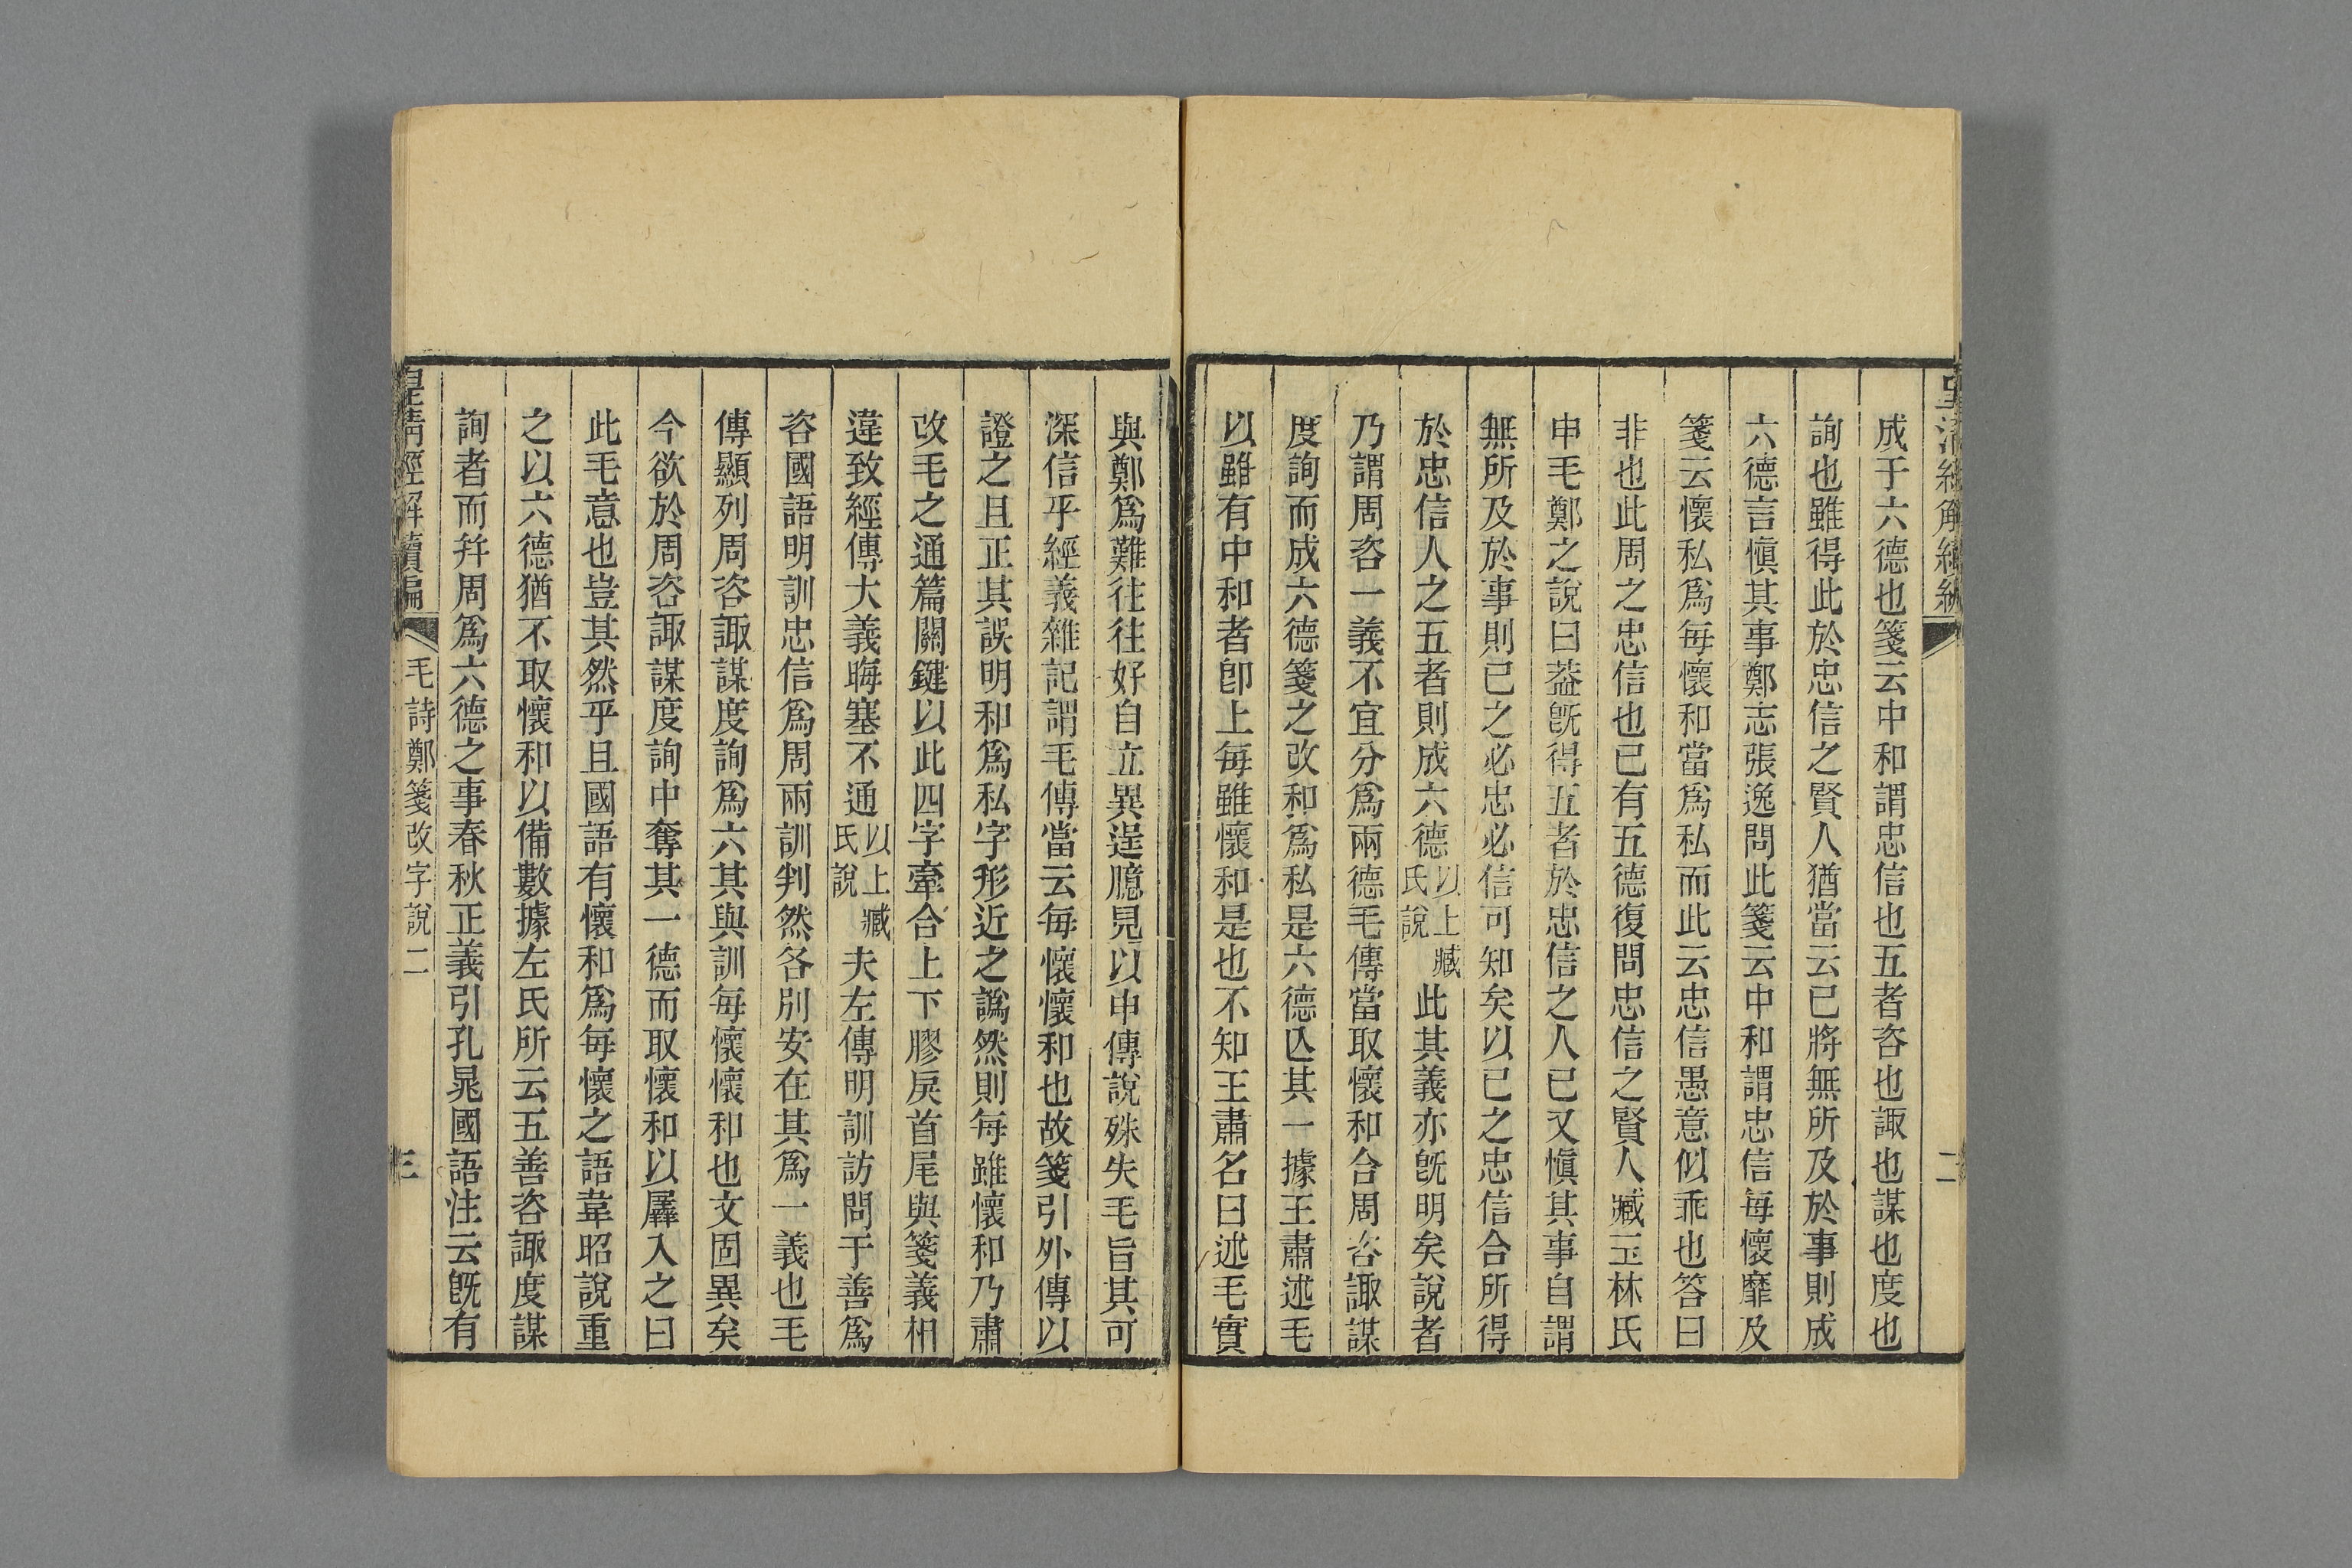 成于六德也箋云中和謂忠信也五者咨也諏也謀也度也
詢也雖得此於忠信之賢人猶當云已將無所及於事則成
六德言愼其事鄭志張逸問此箋云中和謂忠信每懷靡及
箋云懷私爲每懷和當爲私而此云忠信愚意似乖也答曰
非也此周之忠信也已有五德復問忠信之賢人臧玉林氏
申毛鄭之說曰葢旣得五者於忠信之人已又愼其事自謂
無所及於事則已之必忠必信可知矣以已之忠信合所得
於忠信人之五者則成六德以上臧氏說此其義亦旣明矣說者
乃謂周咨一義不宜分爲兩德毛傳當取懷和合周咨諏謀
度詢而成六德箋之改和爲私是六德亾其一據王肅述毛
以雖有中和者卽上每雖懷和是也不知王肅名曰述毛實
與鄭爲難往往好自立異逞臆見以申傳說殊失毛旨其可
深信乎經義雜記謂毛傳當云每懷懷和也故箋引外傳以
證之且正其誤明和爲私字形近之譌然則每雖懷和乃肅
改毛之通篇關鍵以此四字牽合上下膠戾首尾與箋義相
違致經傳大義晦塞不通以上臧氏說夫左傳明訓訪問于善爲
咨國語明訓忠信爲周兩訓判然各別安在其爲一義也毛
傳顯列周咨諏謀度詢爲六其與訓每懷懷和也文固異矣
今欲於周咨諏謀度詢中奪其一德而取懷和以羼入之曰
此毛意也豈其然乎且國語有懷和爲每懷之語韋昭說重
之以六德猶不取懷和以備數據左氏所云五善咨諏度謀
詢者而幷周爲六德之事春秋正義引孔晁國語注云旣有
皇淸經解續編
毛詩鄭箋改字說二
三